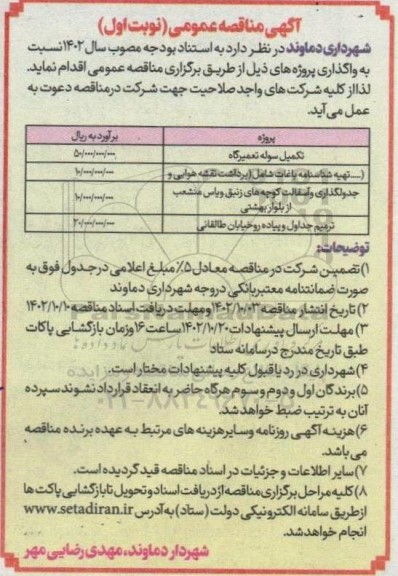 آگهی مناقصه عمومی (نوبت اول)
شهرداری دماوند در نظر دارد به استناد بودجه مصوب سال ۱۴۰۲ نسبت
به واگذاری پروژه های ذیل از طریق برگزاری مناقصه عمومی اقدام نماید.
لذا از کلیه شرکت های واجد صلاحیت جهت شرکت در مناقصه دعوت به
عمل می آید.
پروژه	برآورد به ریال
تکمیل سوله تعمیرگاه	۵۰/۰۰۰/۰۰۰/۰۰۰
تهیه شناسنامه باغات شامل (برداشت نقشه هوایی و ...)	۱۰/۰۰۰/۰۰۰/۰۰۰
جدولگذاری و آسفالت کوچه های زنبق و یاس منشعب	۱۰/۰۰۰/۰۰۰/۰۰۰
از بلوار بهشتی
ترمیم جداول و پیاده رو خیابان طالقانی	۲۰/۰۰۰/۰۰۰/۰۰۰
توضیحات:
۱) تضمین شرکت در مناقصه معادل ۵٪ مبلغ اعلامی در جدول فوق به
صورت ضمانتنامه معتبر بانکی در وجه شهرداری دماوند
۲) تاریخ انتشار مناقصه ۱۴۰۲/۱۰/۰۳ و مهلت دریافت اسناد مناقصه ۱۴۰۲/۱۰/۱۰
۳) مهلت ارسال پیشنهادات ۱۴۰۲/۱۰/۲۰ ساعت ۱۶ و زمان بازگشایی پاکات
طبق تاریخ مندرج در سامانه ستاد
۴) شهرداری در رد یا قبول کلیه پیشنهادات مختار است.
۵) برندگان اول و دوم و سوم هرگاه حاضر به انعقاد قرارداد نشوند سپرده
آنان به ترتیب ضبط خواهد شد.
۶) هزینه آگهی روزنامه و سایر هزینه های مرتبط به عهده برنده مناقصه
می باشد.
۷) سایر اطلاعات و جزئیات در اسناد مناقصه قید گردیده است.
۸) کلیه مراحل برگزاری مناقصه از دریافت اسناد و تحویل تا بازگشایی پاکت ها
از طریق سامانه الکترونیکی دولت (ستاد) به آدرس www.setadiran.ir
انجام خواهد شد.
شهردار دماوند، مهدی رضایی مهر